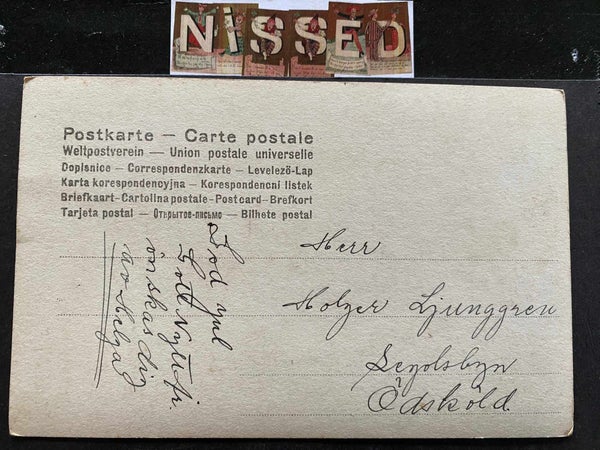 NISSED
Postkarte — Carte postale
Weltpostverein — Union postale universelle
Dopisnice — Correspondenzkarte — Levelező-Lap
Karta korespondencyjna — Korespondenoni listek
Briefkaart-Cartolina postale-Post card-Brefkort
Tarjeta postal — Открытое-письмо — Bilhete postal
God jul
Gott Nytt år
önskas dig
av Helga
Herr
Holger Ljunggren
Ödsköld.